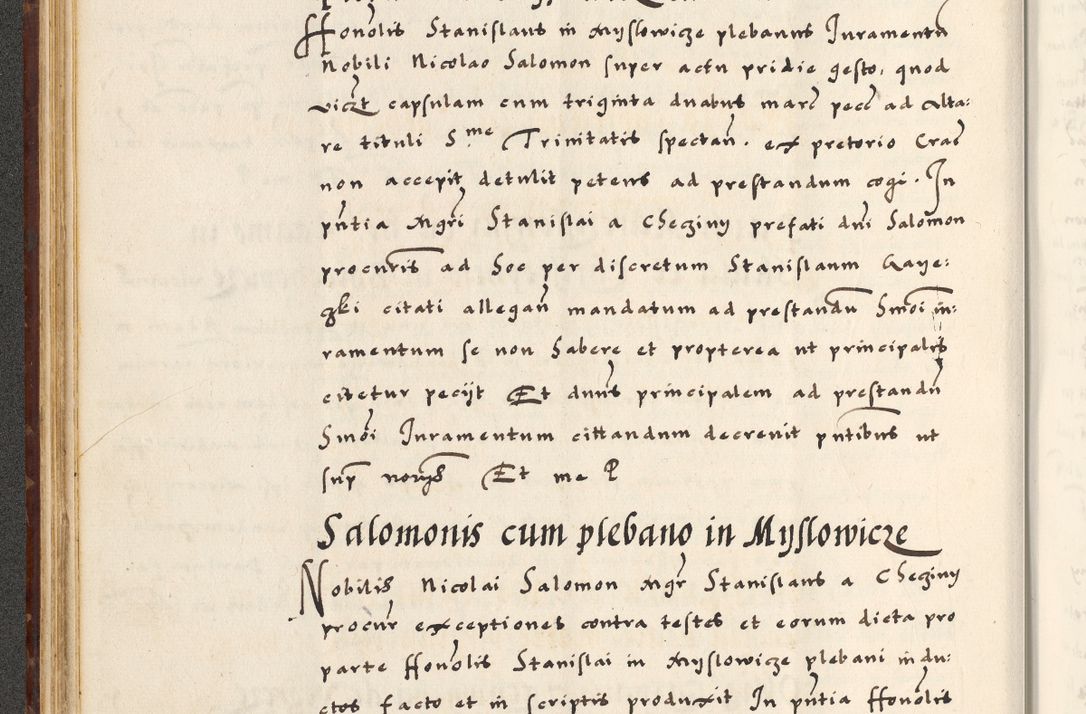 Honolis Stanislaus in Myslowicze plebanus Juramenta
Nobili Nicolao Salomon super actu pridie gesto, quod
viczt capsulam cum triginta duabus marc pecc ad Alta:
re tituli S.me Trinitatis spectan. ex pretorio Crac
non accepit detulit petens ad prestandum cogi. In
pntia Mgri Stanislai a Checziny prefati dni Salomon
procuris ad hoc per discretum Stanislaum
zki citati allegan mandatum ad prestandu hmoi in:
ramentum se non habere et propterea ut principalis
citetur pecijt Et dnus principalem ad prestandu
hmoi Juramentum cittandum decrevit pntibus ut
sup Et me P
Salomonis cum plebano in Myslowicze
Nobilis Nicolai Salomon Mgr Stanislaus a Checziny
procur exceptiones contra testes et eorum dicta pro
parte Honolis Stanislai in Myslowicze plebani indu:
ctos facto et in scriptis produxit In pntia Honolis